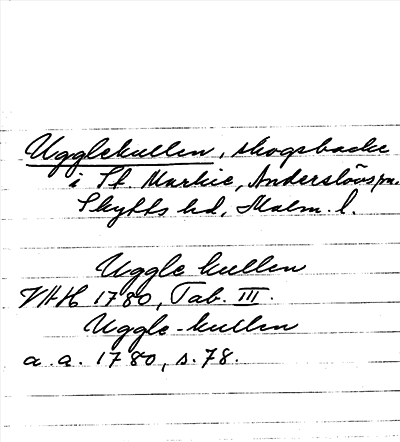 Ugglekullen, skogsbacke
i St. Markie, Anderslövs sn.
Skytts hd, Malm. l.
Uggle kullen
VAH 1780, Tab. III.
Uggle-kullen
a. a. 1780, s. 78.